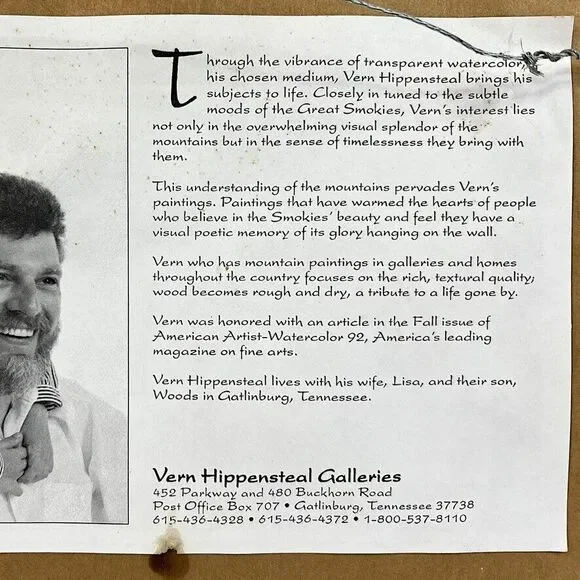 Through the vibrance of transparent watercolor,
his chosen medium, Vern Hippensteal brings his
subjects to life. Closely in tuned to the subtle
moods of the Great Smokies, Vern's interest lies
not only in the overwhelming visual splendor of the
mountains but in the sense of timelessness they bring with
them.
This understanding of the mountains pervades Vern's
paintings. Paintings that have warmed the hearts of people
who believe in the Smokies' beauty and feel they have a
visual poetic memory of its glory hanging on the wall.
Vern who has mountain paintings in galleries and homes
throughout the country focuses on the rich, textural quality;
wood becomes rough and dry, a tribute to a life gone by.
Vern was honored with an article in the Fall issue of
American Artist-Watercolor 92, America's leading
magazine on fine arts.
Vern Hippensteal lives with his wife, Lisa, and their son,
Woods in Gatlinburg, Tennessee.
Vern Hippensteal Galleries
452 Parkway and 480 Buckhorn Road
Post Office Box 707 • Gatlinburg, Tennessee 37738
615-436-4328 • 615-436-4372 • 1-800-537-8110